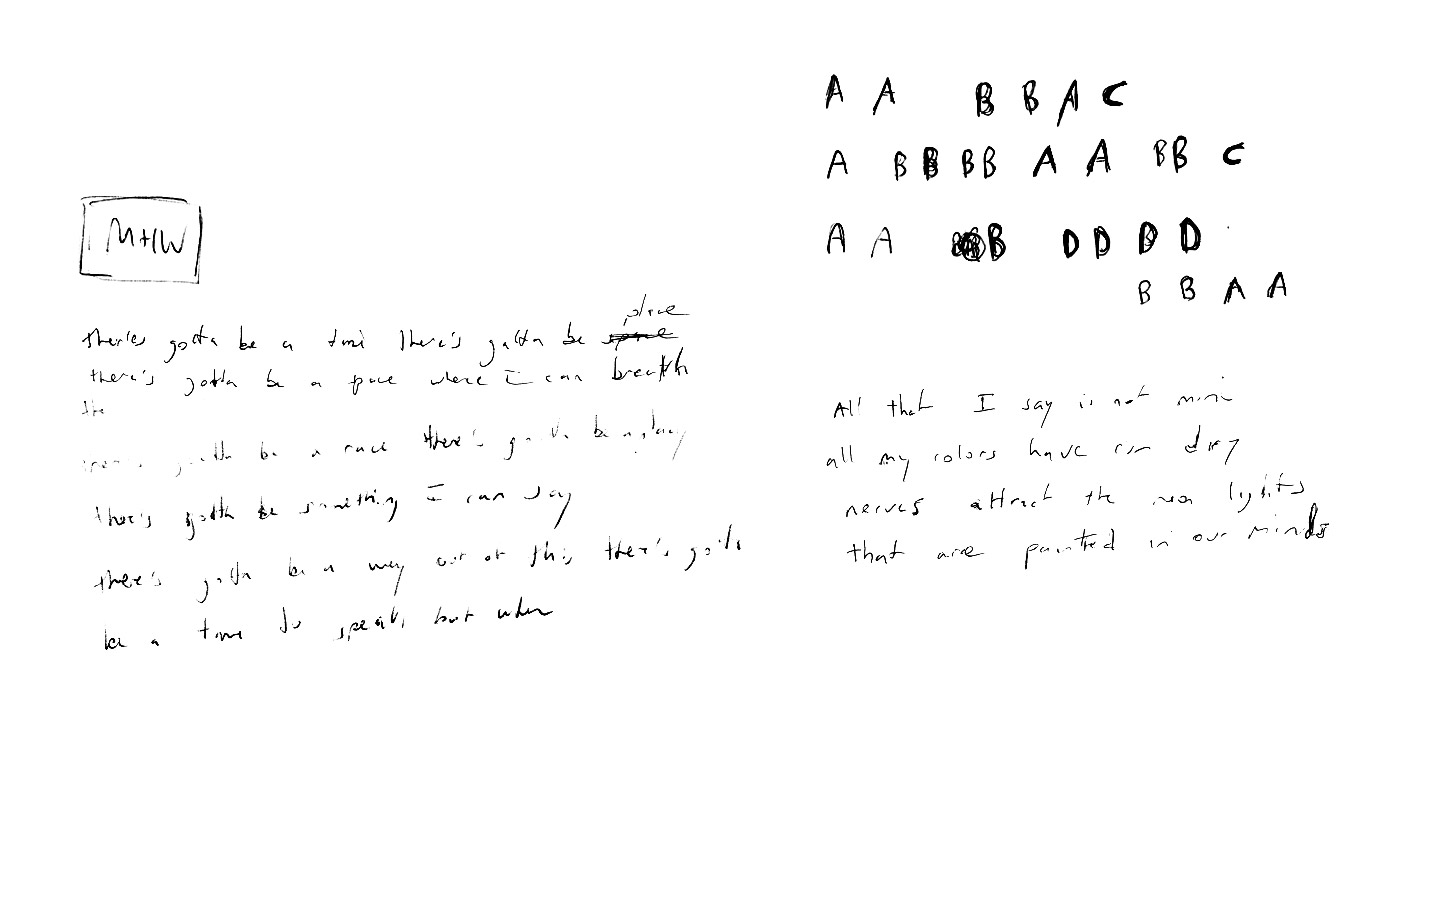 M+IW
place
there's gotta be a time there's gotta be
there's gotta be a pace where I can breath
the
gotta be a race there's gotta be a place
there's gotta be something I can say
there's gotta be a way out of this there's gotta
be a time to speak, but when
A A B B A C
A B B B B A A B B C
A A B D D D D
B B A A
All that I say is not mine
all my colors have run dry
nerves attract the neon lights
that are painted in our minds